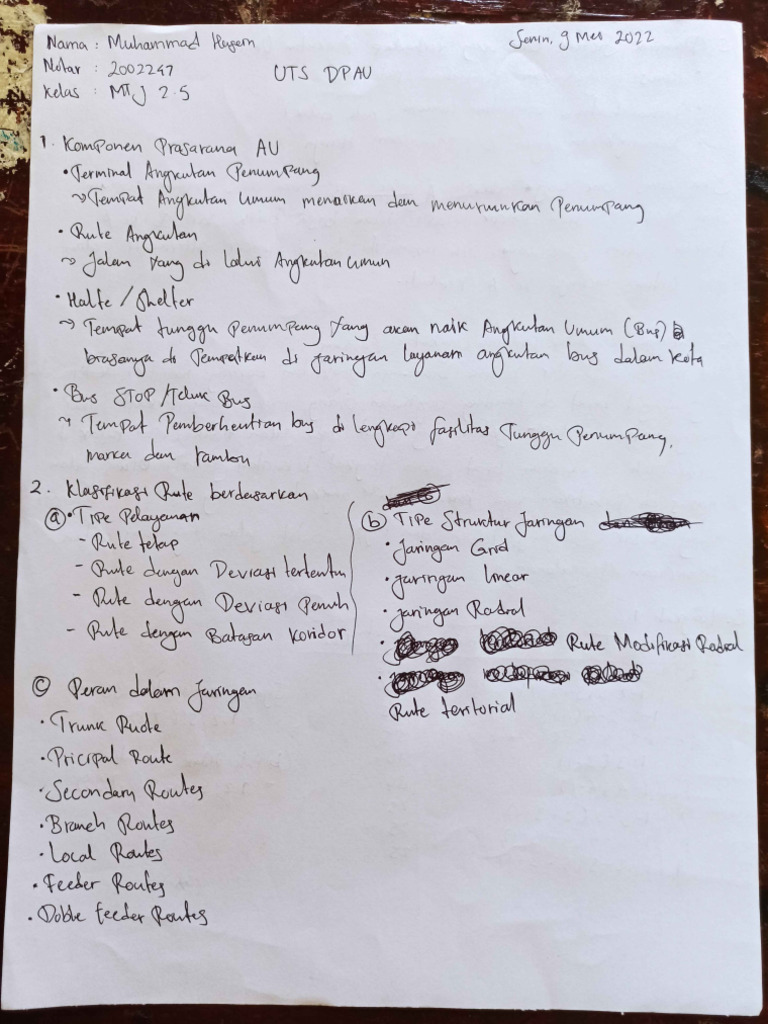 Nama : Muhammad Husein
Senin, 9 Mei 2022
Notar : 2002247
UTS DPAU
Kelas : MTJ 2.5
1. Komponen Prasarana AU
• Terminal Angkutan Penumpang
~> Tempat Angkutan Umum menaikan dan menurunkan Penumpang
• Rute Angkutan
~> Jalan yang di lalui Angkutan Umum
• Halte / Shelter
~> Tempat tunggu Penumpang yang akan naik Angkutan Umum (Bus)
biasanya di Tempatkan di jaringan layanan angkutan bus dalam kota
• Bus STOP / Teluk Bus
~> Tempat Pemberhentian bus di lengkapi fasilitas Tunggu Penumpang,
marka dan rambu
2. Klasifikasi Rute berdasarkan
(a) • Tipe Pelayanan
- Rute tetap
- Rute dengan Deviasi tertentu
- Rute dengan Deviasi Penuh
- Rute dengan Batasan Koridor
(b) Tipe Struktur Jaringan
• Jaringan Grid
• Jaringan linear
• Jaringan Radial
• Rute Modifikasi Radial
•
Rute teritorial
(c) Peran dalam Jaringan
• Trunk Ruote
• Pricipal Route
• Secondary Routes
• Branch Routes
• Local Routes
• Feeder Routes
• Doble feeder Routes